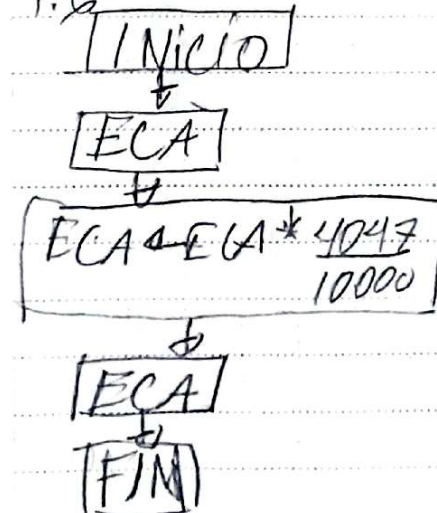 1.6
INicio
ECA
ECA ← ECA * 4047
10000
ECA
FIN